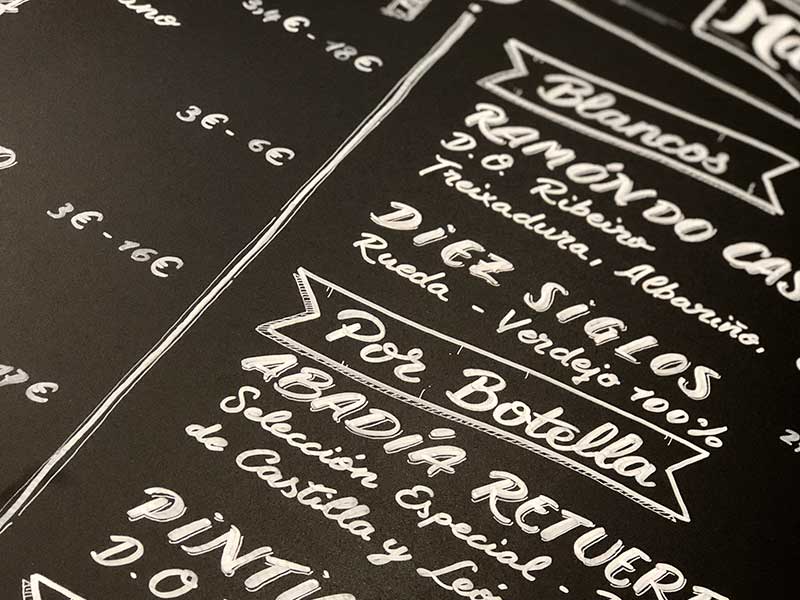 3,4€ - 18€
3€ - 6€
3€ - 16€
17€
Blancos
RAMÓNDO CAS
D.O. Ribeiro
Treixadura, Albariño,
DIEZ SIGLOS
Rueda - Verdejo 100%
Por Botella
ABADÍA RETUERT
Selección Especial -
de Castilla y León
D.O